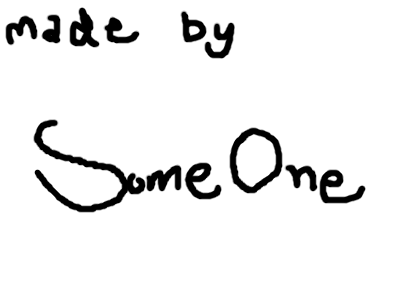 made by
SomeOne